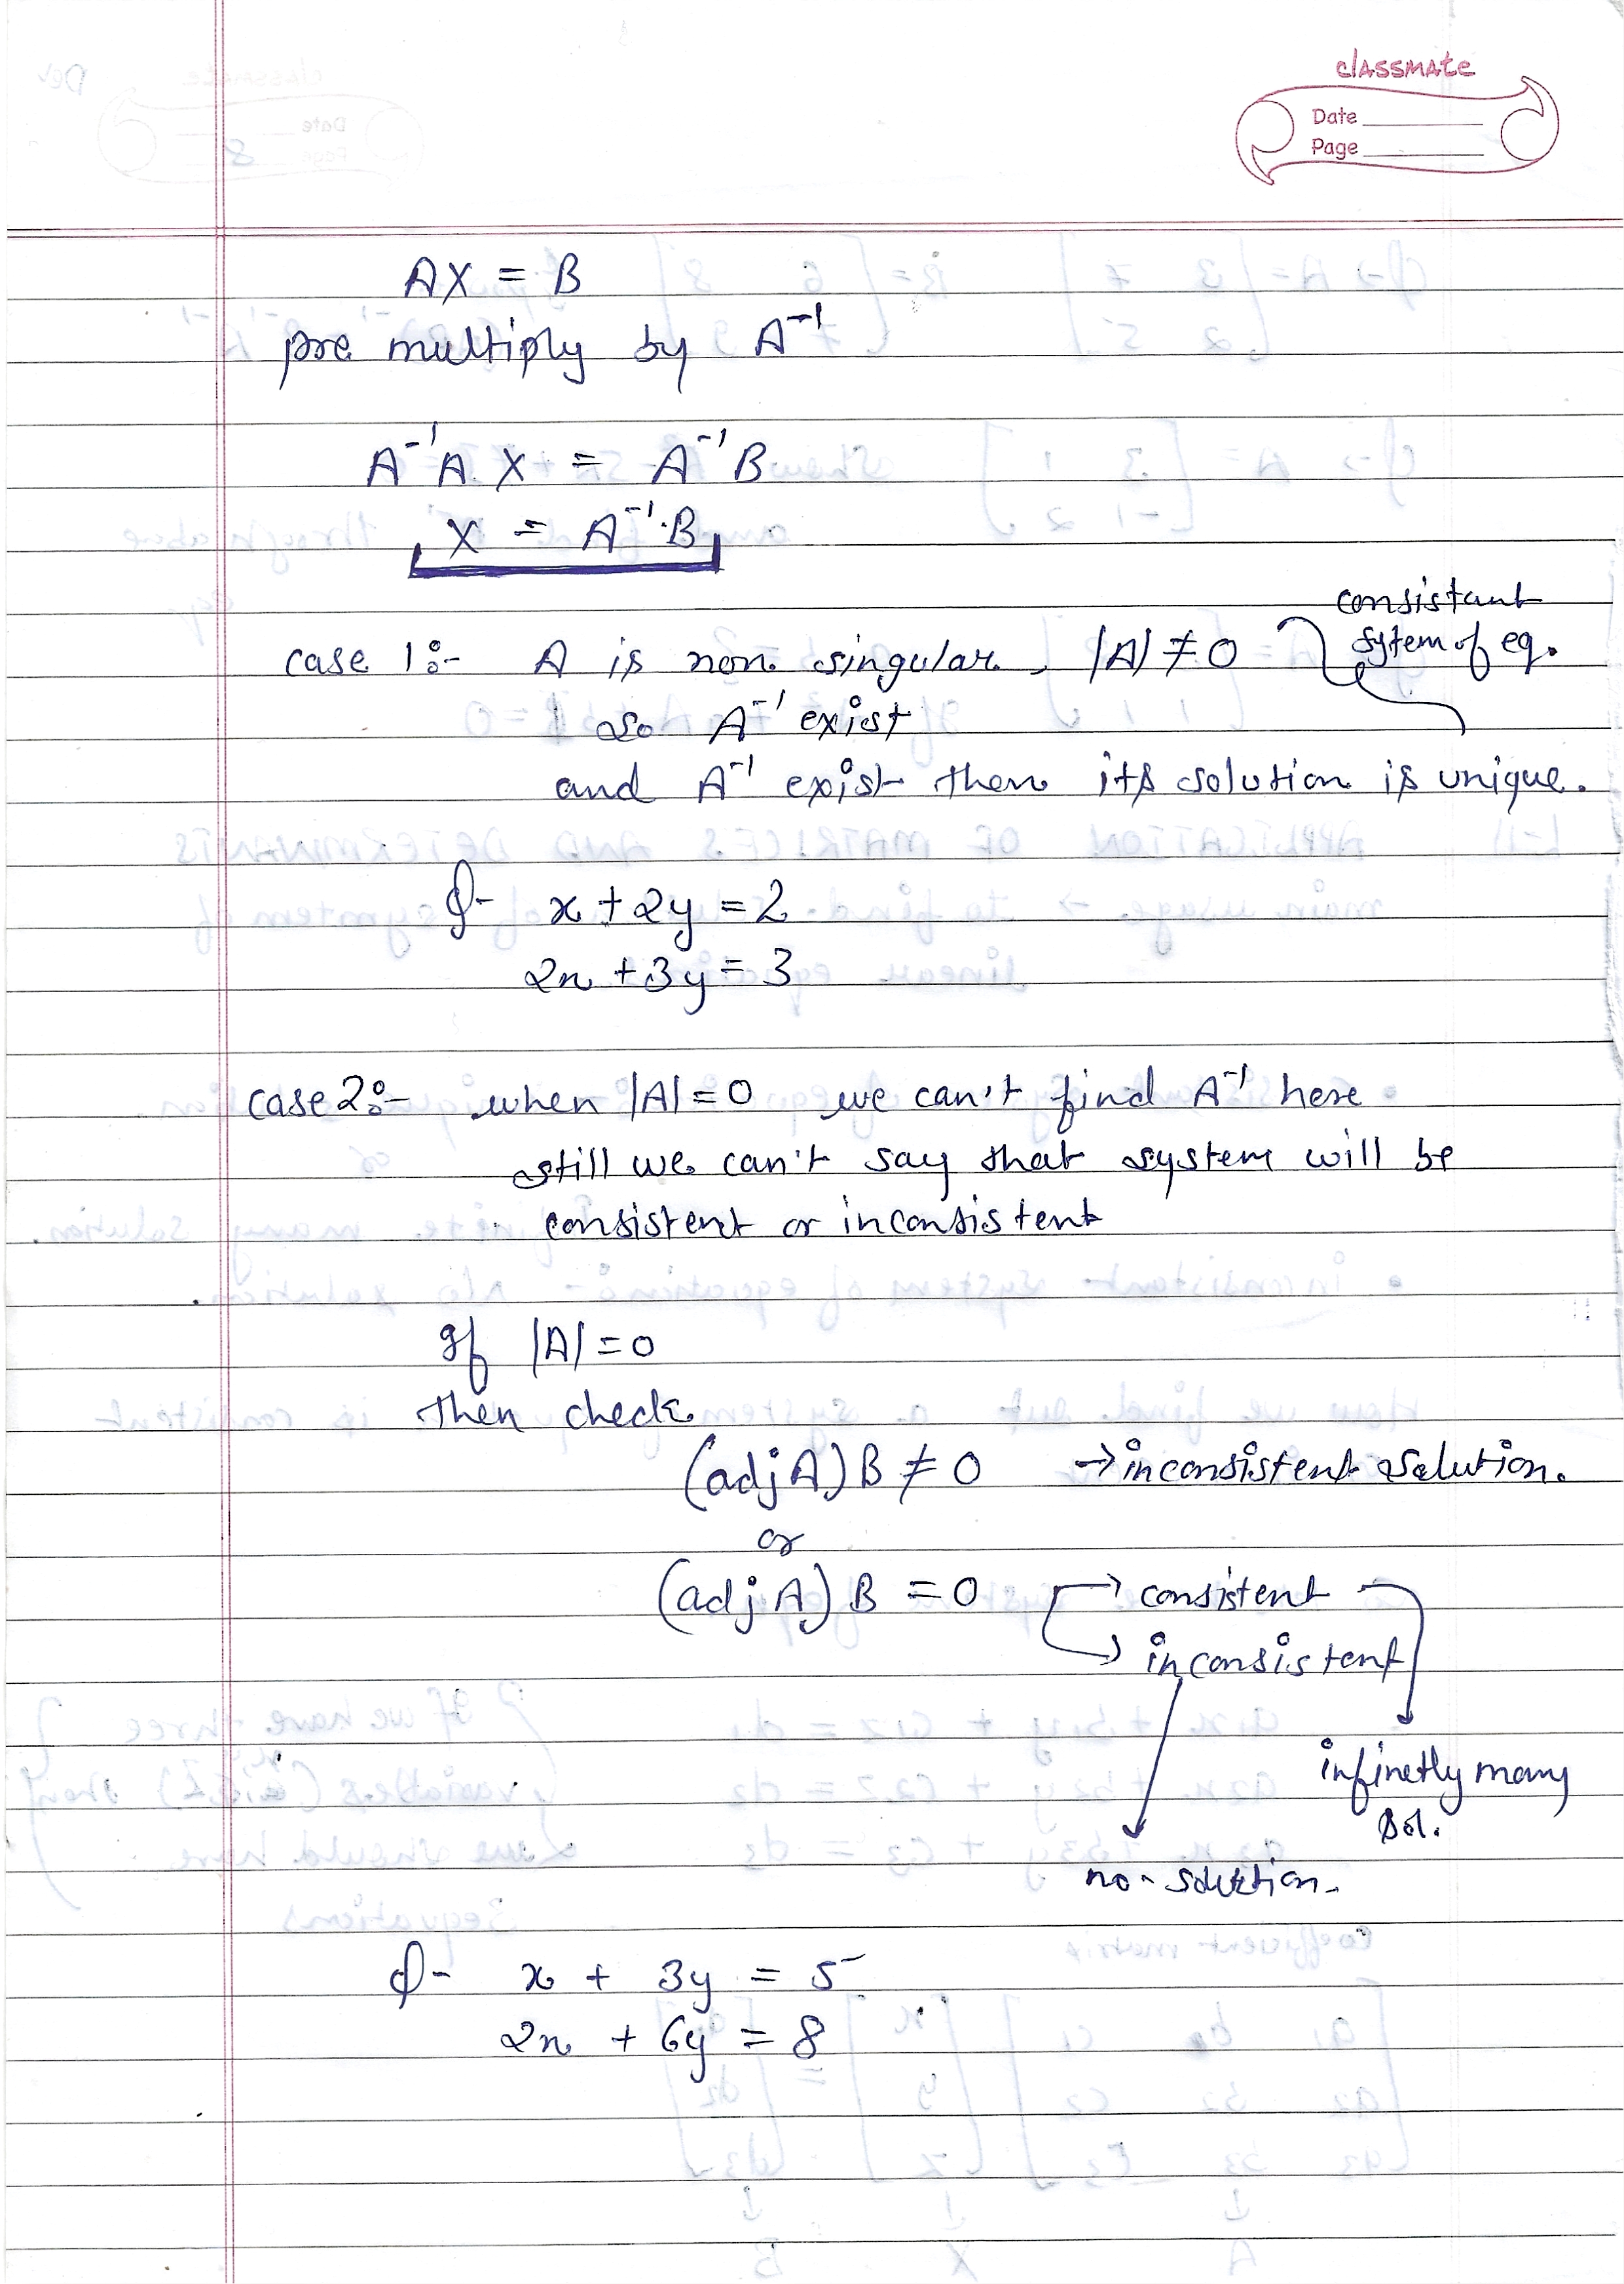 classmate
Date
Page
AX = B
pre multiply by A⁻¹
A⁻¹A. X = A⁻¹B
X = A⁻¹·B
consistant
sytem of eq.
case 1:- A is non singular, |A| ≠ 0
so A⁻¹ exist
and A⁻¹ exist then its solution is unique.
Q- x + 2y = 2
2x + 3y = 3
case 2:- when |A| = 0 we can't find A⁻¹ here
still we can't say that system will be
consistent or inconsistent
If |A| = 0
then check
(adj A) B ≠ 0 → inconsistent solution.
or
(adj A) B = 0 → consistent
→ inconsistent
infinetly many
sol.
no - solution.
Q- x + 3y = 5
2x + 6y = 8